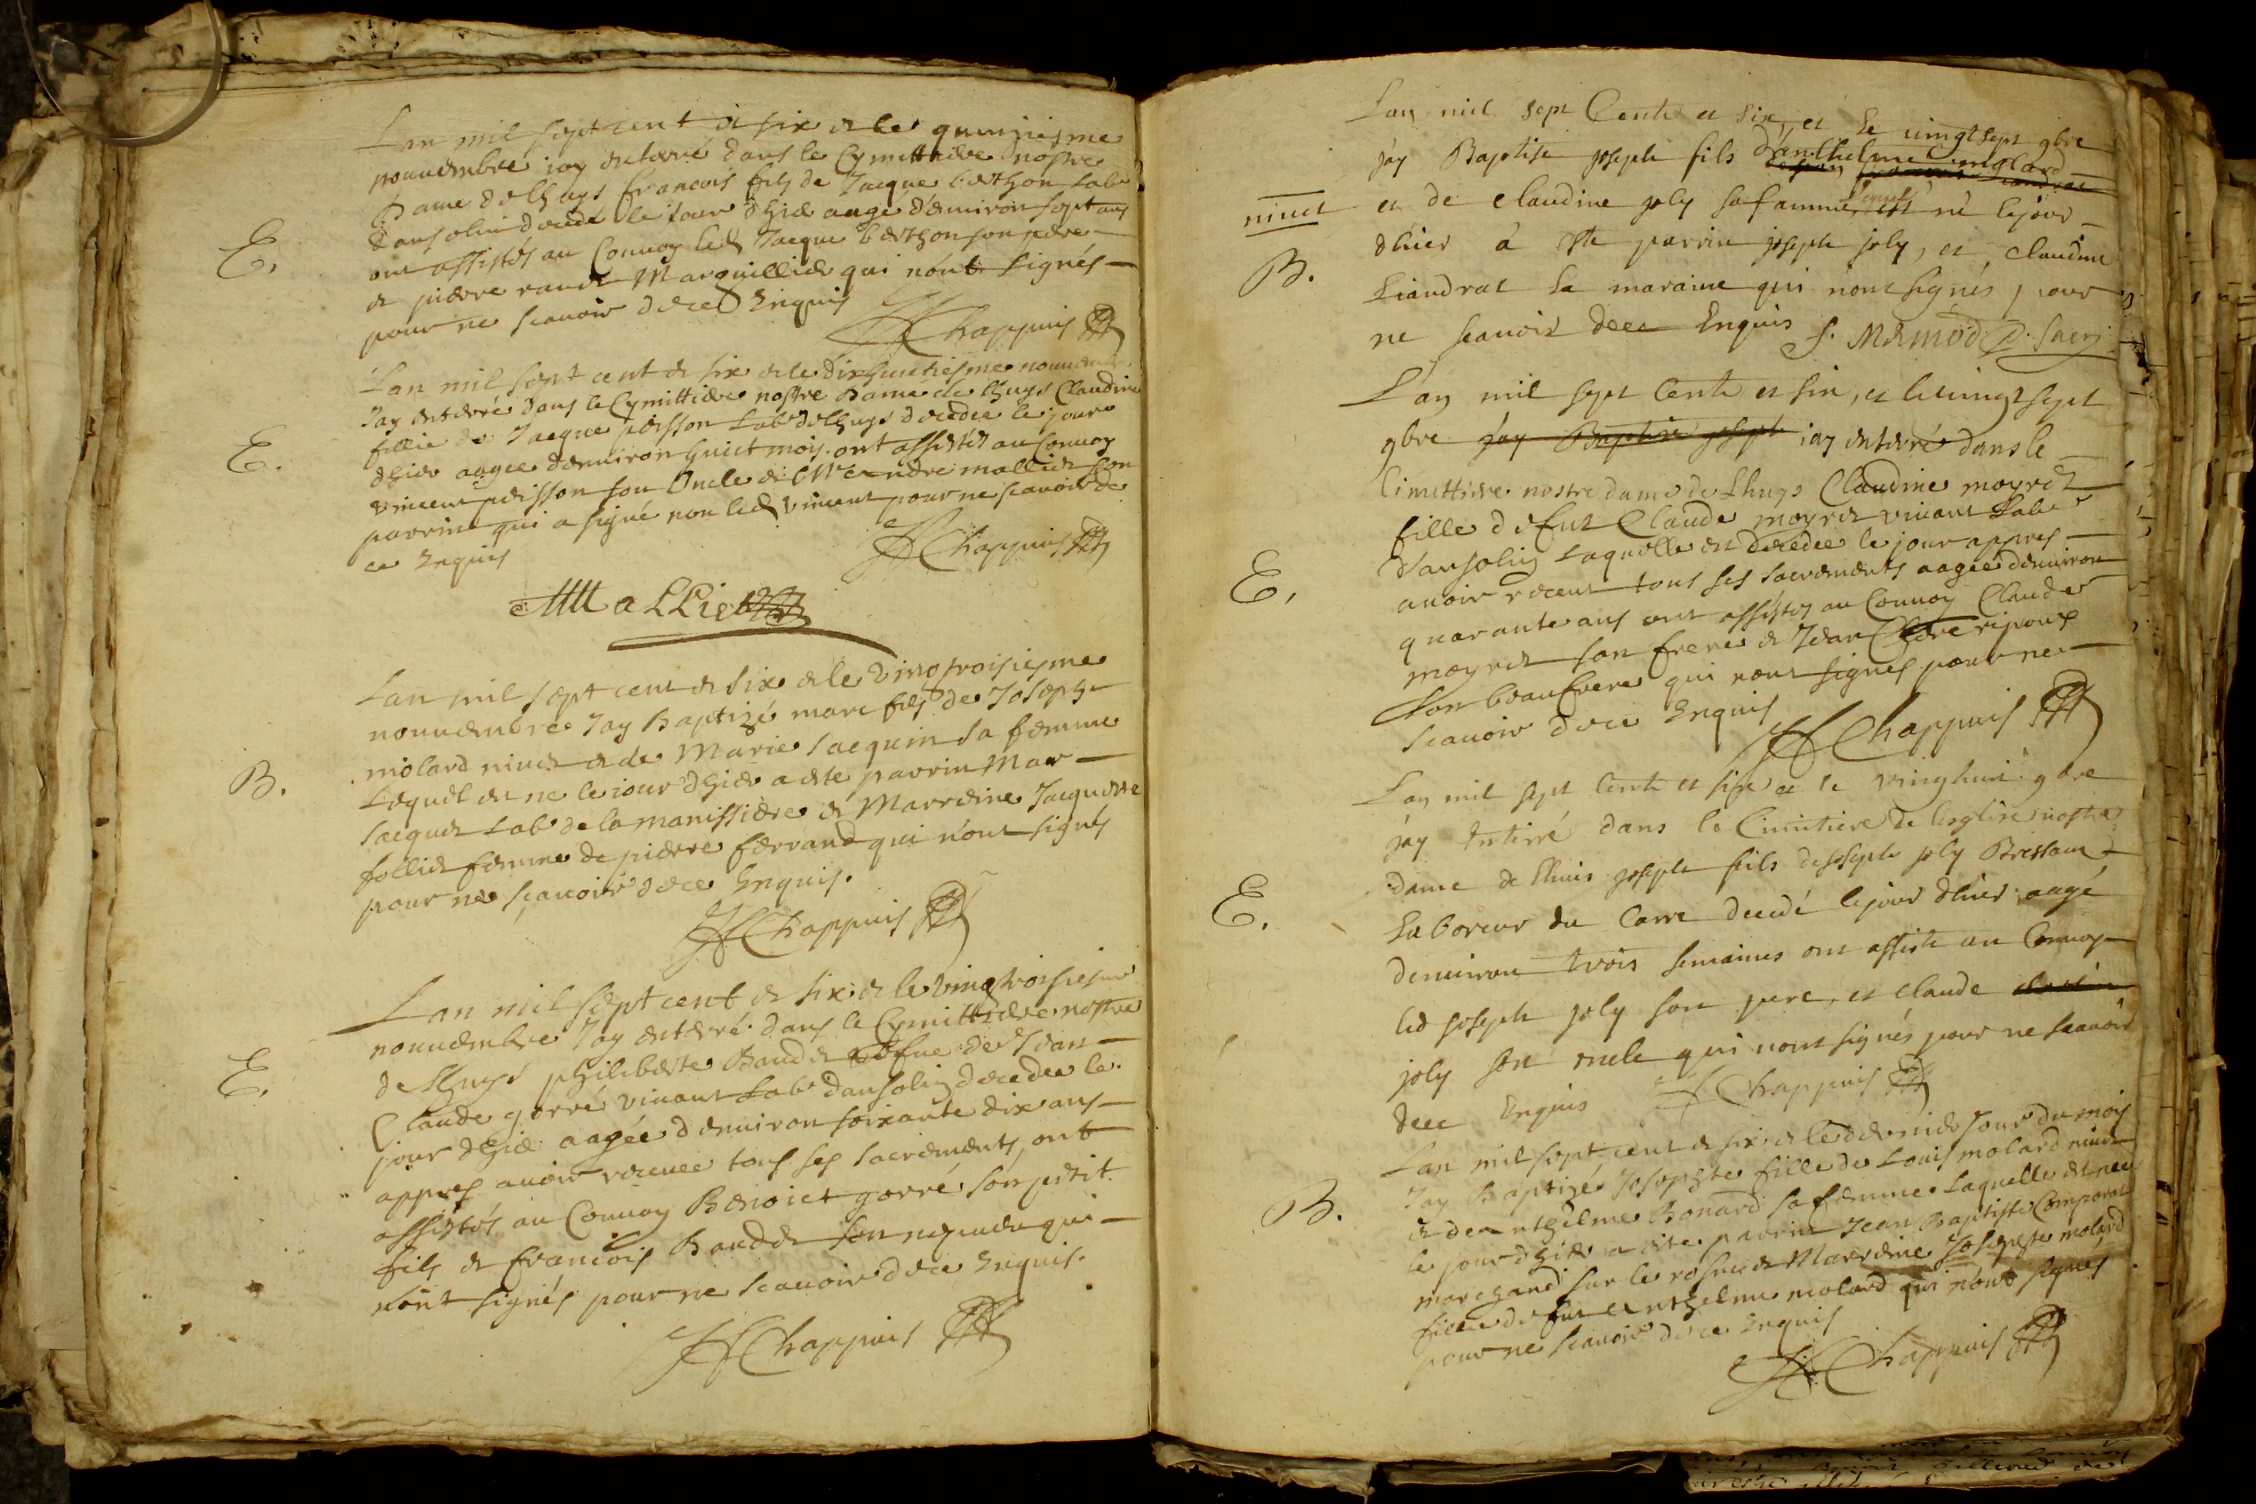 Lan mil sept cent & six & le quinziesme
nouuembre iay enterré dans le Cymittiere nostre
Dame de lhuys francois fils de Jacque berthon Lab
dansolin decedé le iour dhier aagé denuiron sept ans
E.
ont assistés au Conuoy led Jacque berthon son pere
& pierre Marguillier qui n'ont signés
pour ne scauoir de ce Enquis
Chappuis
Lan mil sept cent & six & le dixhuictiesme nouuemb
Jay enterré dans le Cymittiere nostre Dame de lhuys Claudine
fillie de Jacque poisson Lab de lhuys decedee le jour
E.
dhier aagee denuiron huict mois. ont assistés au Conuoy
vincent poisson son Oncle & Mre andre mallier son
parrin qui a signé non led vincent pour ne scauoir de
ce Enquis
Chappuis
Mallier
Lan mil sept cent & six & le vingtroisiesme
nouuembre Jay Baptizé marc fils de Joseph
molard niuet & de Marie Jacquin sa femme
B.
Lequel est ne le iour dhier a esté parrin Marc
Jacquet Lab de la manissiere & Marreine Jacqueme
follier femme de pierre ferrand qui n'ont signés
pour ne sçauoir de ce Enquis.
Chappuis
Lan mil sept cent & six & le vingtroisiesme
nouuembre Jay enterré dans le Cymittiere nostre
E.
de lhuys philiberte Baudet vefue de Jean
Claude gorré viuant Lab dansolin decedee le
jour dhier aagée denuiron soixante dix ans
appres auoir receuee tous ses sacrements, ont
assistés au Conuoy Benoict gorré son petit
fils & francois Baudet son nepueu qui
n'ont signés pour ne scauoir de ce Enquis.
Chappuis
Lan mil sept Cents et six, et le uingt sept 9bre
jay Baptisé joseph fils d'anthelme molard
niuet
et de claudine joly sa famme, est né lejour
B.
dhier à esté parrin joseph joly, et claudine
Liandrat la maraine qui n'ont signés pour
ne scauoir dece Enquis J. Mermod p. sacri
Lan mil sept Cents et six, et le uingt sept
9bre jay Baptisé joseph iay enterré dans le
Cimittiere nostre dame de Lhuys Claudine moyret
fille de feut Claude moyret viuant Lab
E.
d'ansolin Laquelle est decedee le jour appres
auoir receut tous ses sacrements aagee denuiron
quarante ans ont assistés au Conuoy Claude
moyret son frere & Jean ripoux
son beau frere qui nont signés pour ne
scauoir de ce Enquis
Chappuis
Lan mil sept Cents et six et le vinghuit 9bre
jay Enterré dans le Cimitiere de leglise nostre
E.
dame de lhuis joseph fils de joseph joly Bressan
Laboreur du Carre decedé lejour dhier aagé
denuiron trois semaines ont assisté au Conuoy
led joseph joly son pere, et claude
joly son oncle qui nont signés pour ne scauoir
dece Enquis Chappuis
Lan mil sept cent & six & le dernier Jour du mois
B.
Jay Baptizé Josephte fille de Louis molard niuet
& de anthelme Bonard sa femme Laquelle est nee
le jour dhier a esté parrin Jean Baptiste Comparat
marchand sur le rosne & Marreine Josephte molard
fillie de feut anthelme molard qui n'ont signés
pour ne scauoir de ce Enquis
Chappuis